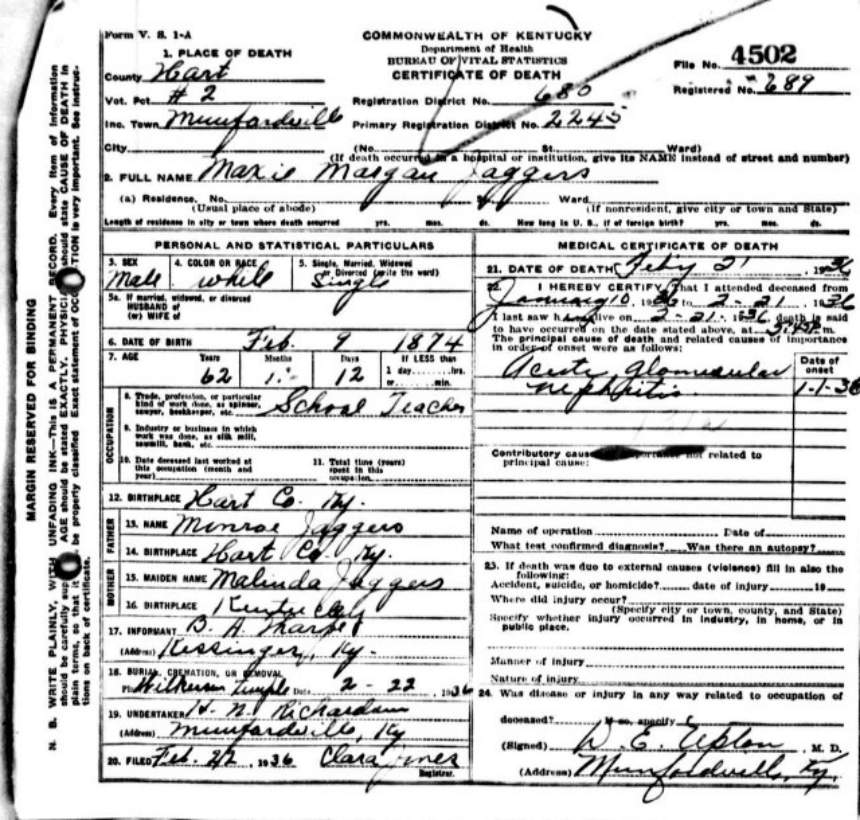 Form V. S. 1-A
COMMONWEALTH OF KENTUCKY
Department of Health
BUREAU OF VITAL STATISTICS
CERTIFICATE OF DEATH
File No. 4502
Registered No. 689
1. PLACE OF DEATH
County Hart
Vot. Pct # 2
Registration District No. 680
Inc. Town Munfordville
Primary Registration District No. 2245
City (No. St. Ward)
(If death occurred in a hospital or institution, give its NAME instead of street and number)
2. FULL NAME Maxie Morgan Jaggers
(a) Residence. No. St. Ward
(Usual place of abode) (If nonresident, give city or town and State)
Length of residence in city or town where death occurred yrs. mos. ds. How long in U. S., if of foreign birth? yrs. mos. ds.
PERSONAL AND STATISTICAL PARTICULARS
3. SEX Male
4. COLOR OR RACE white
5. Single, Married, Widowed or Divorced (write the word) Single
5a. If married, widowed, or divorced
HUSBAND of
(or) WIFE of
6. DATE OF BIRTH Feb. 9 1874
7. AGE Years Months Days If LESS than
62 12 1 day hrs.
or min.
OCCUPATION
8. Trade, profession, or particular
kind of work done, as spinner,
sawyer, bookkeeper, etc. School Teacher
9. Industry or business in which
work was done, as silk mill,
sawmill, bank, etc.
10. Date deceased last worked at
this occupation (month and
year)
11. Total time (years)
spent in this
occupation
12. BIRTHPLACE Hart Co. Ky.
FATHER
13. NAME Monroe Jaggers
14. BIRTHPLACE Hart Co. Ky.
MOTHER
15. MAIDEN NAME Malinda Jaggers
16. BIRTHPLACE Kentucky
17. INFORMANT B. A. Tharpe
(Address) Kessinger, Ky.
18. BURIAL, CREMATION, OR REMOVAL
Wilkerson Temple Date 2-22, 1936
19. UNDERTAKER H. N. Richardson
(Address) Munfordville, Ky
20. FILED Feb. 22, 1936 Clara Jones
Registrar.
MEDICAL CERTIFICATE OF DEATH
21. DATE OF DEATH Feb'y 21, 1936
22. I HEREBY CERTIFY, That I attended deceased from
January 10, 1936 to 2-21-, 1936
I last saw him alive on 2-21-, 1936, death is said
to have occurred on the date stated above, at 5:45P m.
The principal cause of death and related causes of importance
in order of onset were as follows:
Date of
onset
Acute glomerular
nephritis 1-1-36
Contributory causes of importance not related to
principal cause:
Name of operation Date of
What test confirmed diagnosis? Was there an autopsy?
23. If death was due to external causes (violence) fill in also the
following:
Accident, suicide, or homicide? date of injury 19
Where did injury occur?
(Specify city or town, county, and State)
Specify whether injury occurred in industry, in home, or in
public place.
Manner of injury
Nature of injury
24. Was disease or injury in any way related to occupation of
deceased? If so, specify
(Signed) W. E. Upton, M. D.
(Address) Munfordville, Ky.
MARGIN RESERVED FOR BINDING
N. B. WRITE PLAINLY, WITH UNFADING INK—THIS IS A PERMANENT RECORD. Every item of information
should be carefully AGE should be stated EXACTLY. should state CAUSE OF DEATH in
plain terms, so that it be properly classified. Exact statement of is very important. See instruc-
tions on back of certificate.